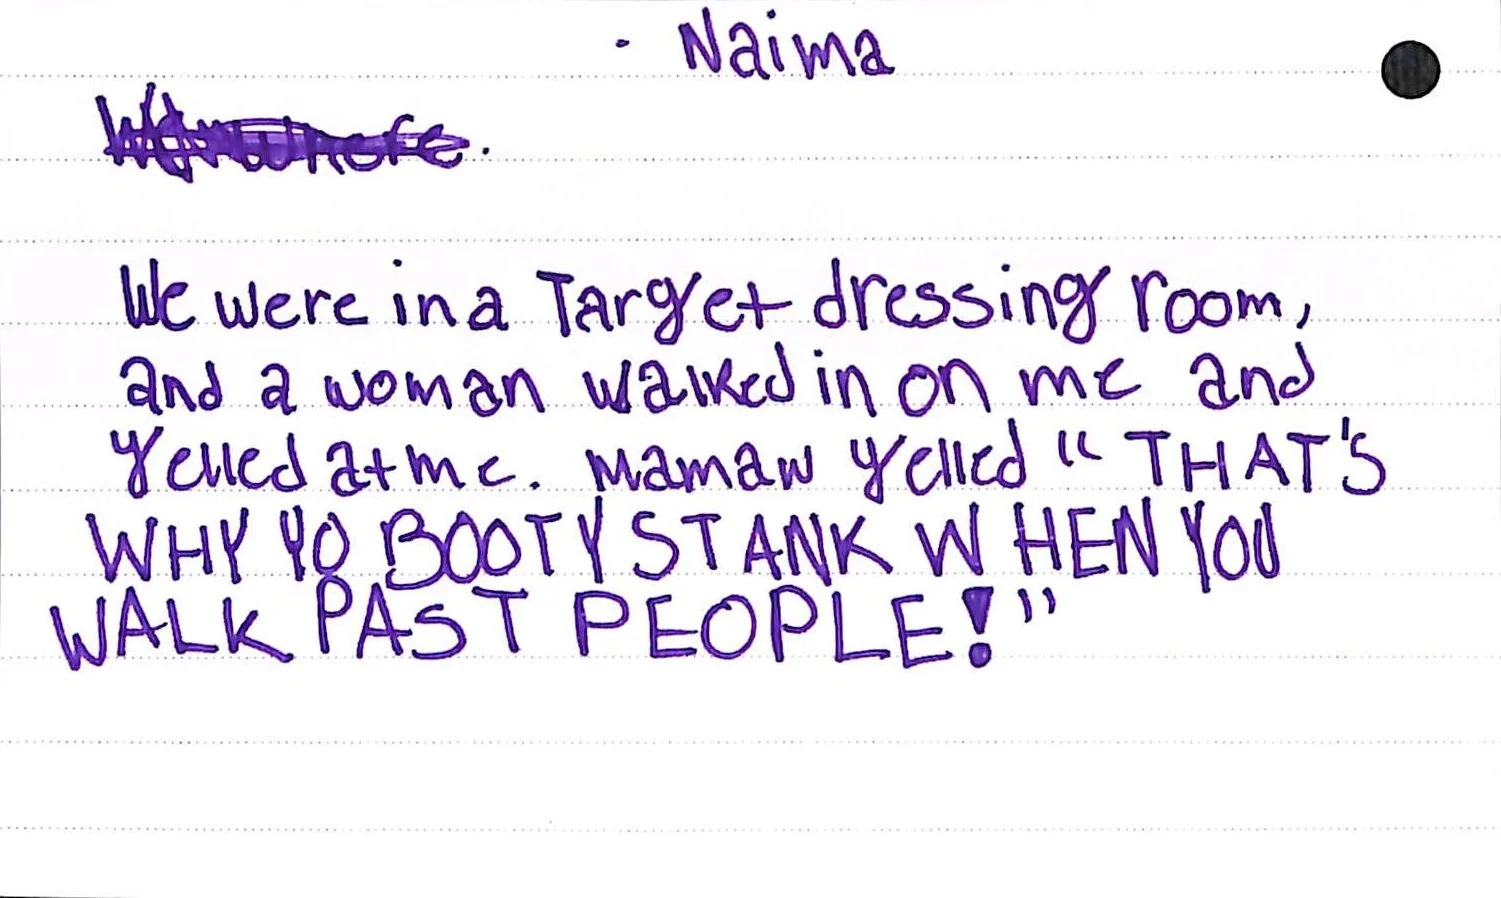 - Naima
We were in a Target dressing room,
and a woman walked in on me and
yelled at me. Mamaw yelled "THAT'S
WHY YO BOOTY STANK WHEN YOU
WALK PAST PEOPLE!"